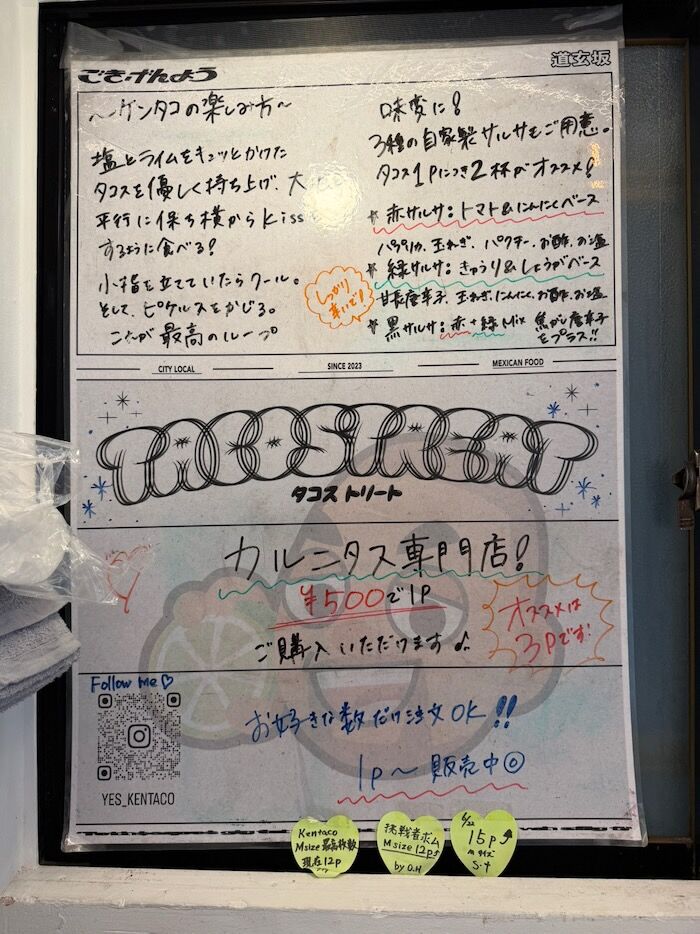 ごきげんよう
道玄坂
〜ゲンタコの楽しみ方〜
塩とライムをキュッとかけた
タコスを優しく持ち上げ、大
平行に保ち横からkiss
するように食べる!
小指を立てていたらクール。
そして、ピクルスをかじる。
これが最高のループ
しっかり
辛いで!
味変に!
3種の自家製サルサもご用意。
タコス1Pにつき2杯がオススメ!
赤サルサ:トマト&にんにくベース
パプリカ、玉ねぎ、パクチー、お酢、お塩
緑サルサ:きゅうり&しょうがベース
甘長唐辛子、玉ねぎ、にんにく、お酢、お塩
黒サルサ:赤+緑Mix 焦がし唐辛子
をプラス!!
CITY LOCAL
SINCE 2023
MEXICAN FOOD
TACOSTREAT
タコス トリート
カルニタス専門店!
¥500で1P
ご購入いただけます♪
オススメは
3Pです!
Follow me♡
YES_KENTACO
お好きな数だけ注文OK!!
1P〜販売中◎
Kentaco
Msize最高枚数
現在12p
挑戦者求ム
Msize12p↑
by O.H
6/22
15p↑
Mサイズ
S.Y